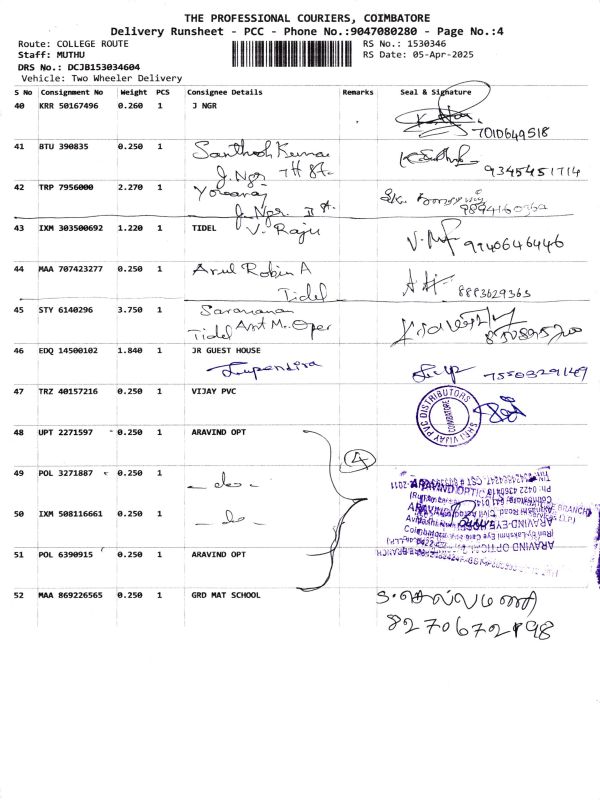 THE PROFESSIONAL COURIERS, COIMBATORE
Delivery Runsheet - PCC - Phone No.:9047080280 - Page No.:4
Route: COLLEGE ROUTE RS No.: 1530346
Staff: MUTHU RS Date: 05-Apr-2025
DRS No.: DCJB153034604
Vehicle: Two Wheeler Delivery
S No Consignment No Weight PCS Consignee Details Remarks Seal & Signature
40 KRR 50167496 0.260 1 J NGR
7010649518
41 BTU 390835 0.250 1 Santhosh Kumar
J. Ngr 7H St. 9345451714
42 TRP 7956000 2.270 1
J. Ngr. II St.
43 IXM 303500692 1.220 1 TIDEL
V. Raju 9940646446
44 MAA 707423277 0.250 1 Arul Robin A
Tidel 8883629363
45 STY 6140296 3.750 1 Saravanan
Tidel Asst M. Oper
46 EDQ 14500102 1.840 1 JR GUEST HOUSE
Lupendira 7550329149
47 TRZ 40157216 0.250 1 VIJAY PVC
SHRI VIJAY PVC DISTRIBUTORS
COIMBATORE
48 UPT 2271597 0.250 1 ARAVIND OPT
4
49 POL 3271887 0.250 1 - do -
50 IXM 508116661 0.250 1 - do -
51 POL 6390915 0.250 1 ARAVIND OPT
52 MAA 869226565 1 GRD MAT SCHOOL